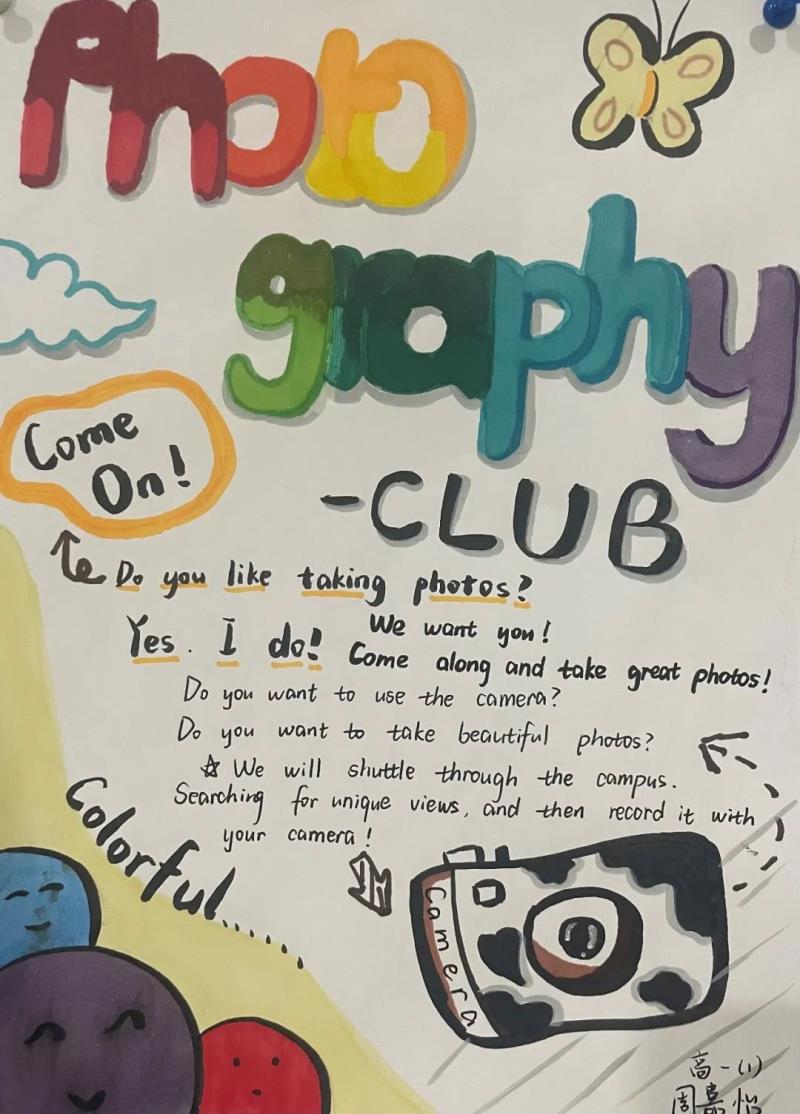 Photo
graphy
-CLUB
Come
On!
Do you like taking photos?
Yes. I do!
We want you!
Come along and take great photos!
Do you want to use the camera?
Do you want to take beautiful photos?
☆ We will shuttle through the campus.
Searching for unique views, and then record it with
your camera!
Colorful......
Camera
高一(1)